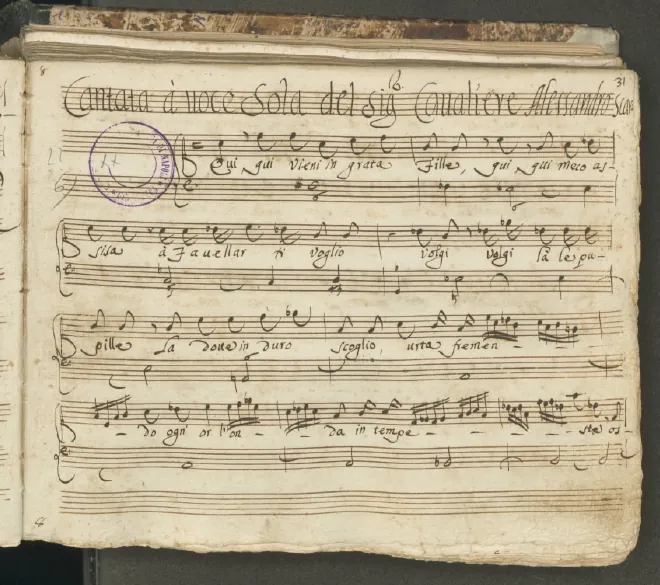 8 31
Cantata à uoce Sola del Sig.r Caualiere Alessandro Scar
Qui qui vieni in grata Fille, qui, qui meco as-
sisa à Fauellar ti voglio volgi volgi là le pu-
pille La doue in duro scoglio, urta fremen -
- do ogn' or l'on - - da in tempe - - - sta os-